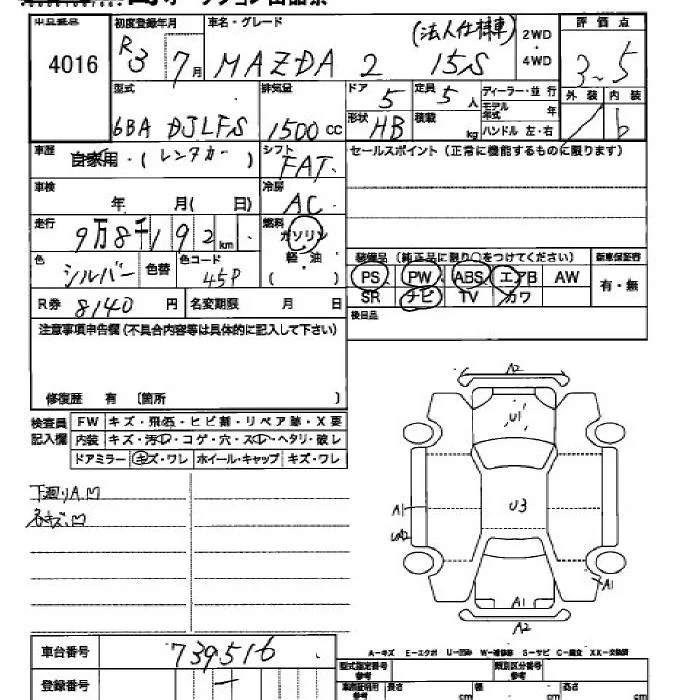 4016
初度登録年月
R3 7月
車名・グレード
MAZDA 2 15S
(法人仕様車)
2WD
・
4WD
評価点
3~5
外装 内装
b
型式
6BA DJLFS
排気量
1500 cc
ドア 5
定員 5人
形状 HB
積載 kg
ディーラー・並行
モデル年式 年
ハンドル 左・右
車歴
自家用・(レンタカー)
シフト
FAT
セールスポイント(正常に機能するものに限ります)
車検
年 月( 日)
冷房
AC
走行
9万8千192km
燃料
ガソリン
軽・油
( )
色
シルバー
色替
色コード
45P
装備品(純正品に限り○をつけてください)
PS PW ABS エアB AW
SR ナビ TV カワ
新車保証書
有・無
後日品
R券 8140円
名変期限 月 日
注意事項申告欄(不具合内容等は具体的に記入して下さい)
修復歴 有〔箇所 〕
検査員
記入欄
FW キズ・飛石・ヒビ割・リペア跡・X要
内装 キズ・汚レ・コゲ・穴・スレ・ヘタリ・破レ
ドアミラー キズ・ワレ ホイール・キャップ キズ・ワレ
下廻りA.M
A2
U1
U3
A1
A1
A1
A2
A-キズ E-エクボ U-凹み W-補修跡 S-サビ C-腐食 XX-交換済
車台番号
739516
登録番号
型式指定番号
参考
類別区分番号
参考
長さ cm
幅 cm
高さ cm